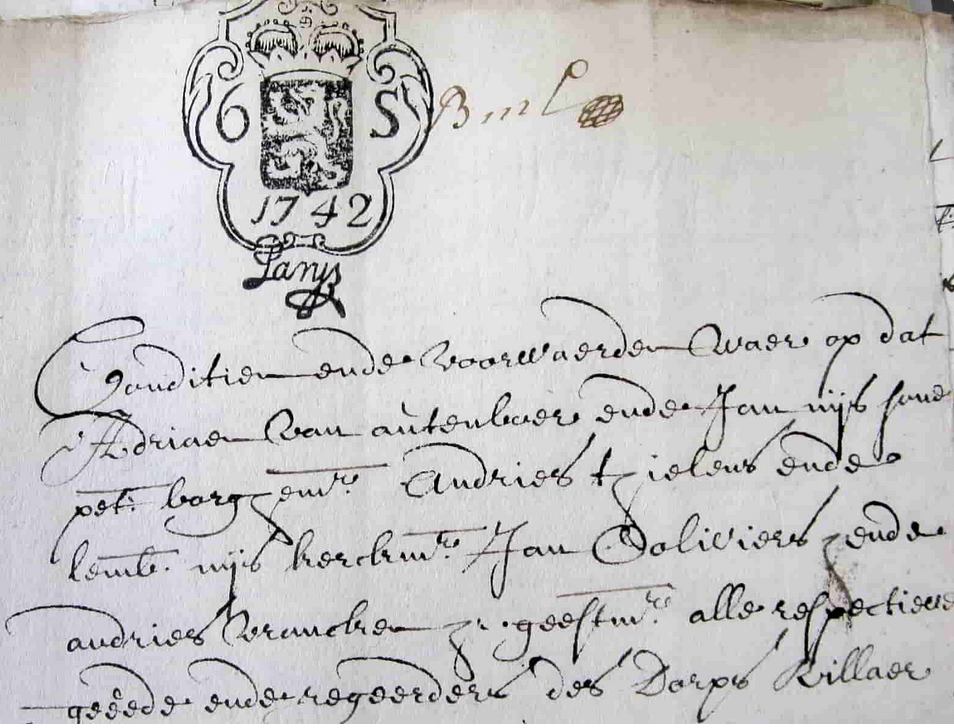 6 S
1742
Lanys
Conditien ende voorwaerden Waer op dat
Adriaen Van autenboer ende Jan nijs sone
pet: borgemrs Andries tzielens ende
lemb: nijs kerckmrs Jan Soliviers ende
andries Vrancken geestmrs alle respective
geëede ende regeerders des Dorps Rillaer